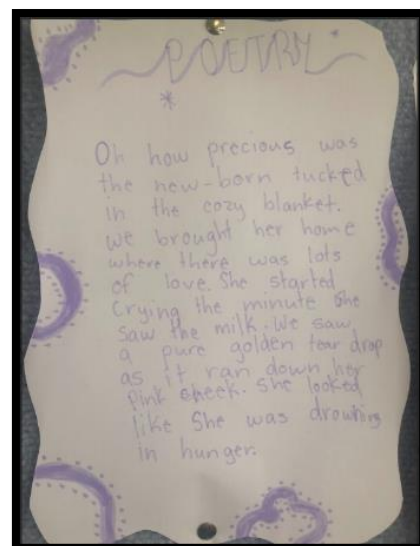 POETRY
Oh how precious was
the new-born tucked
in the cozy blanket.
we brought her home
where there was lots
of love. She started
Crying the minute She
Saw the milk. We saw
a pure golden tear drop
as it ran down her
pink cheek. She looked
like She was drowning
in hunger.